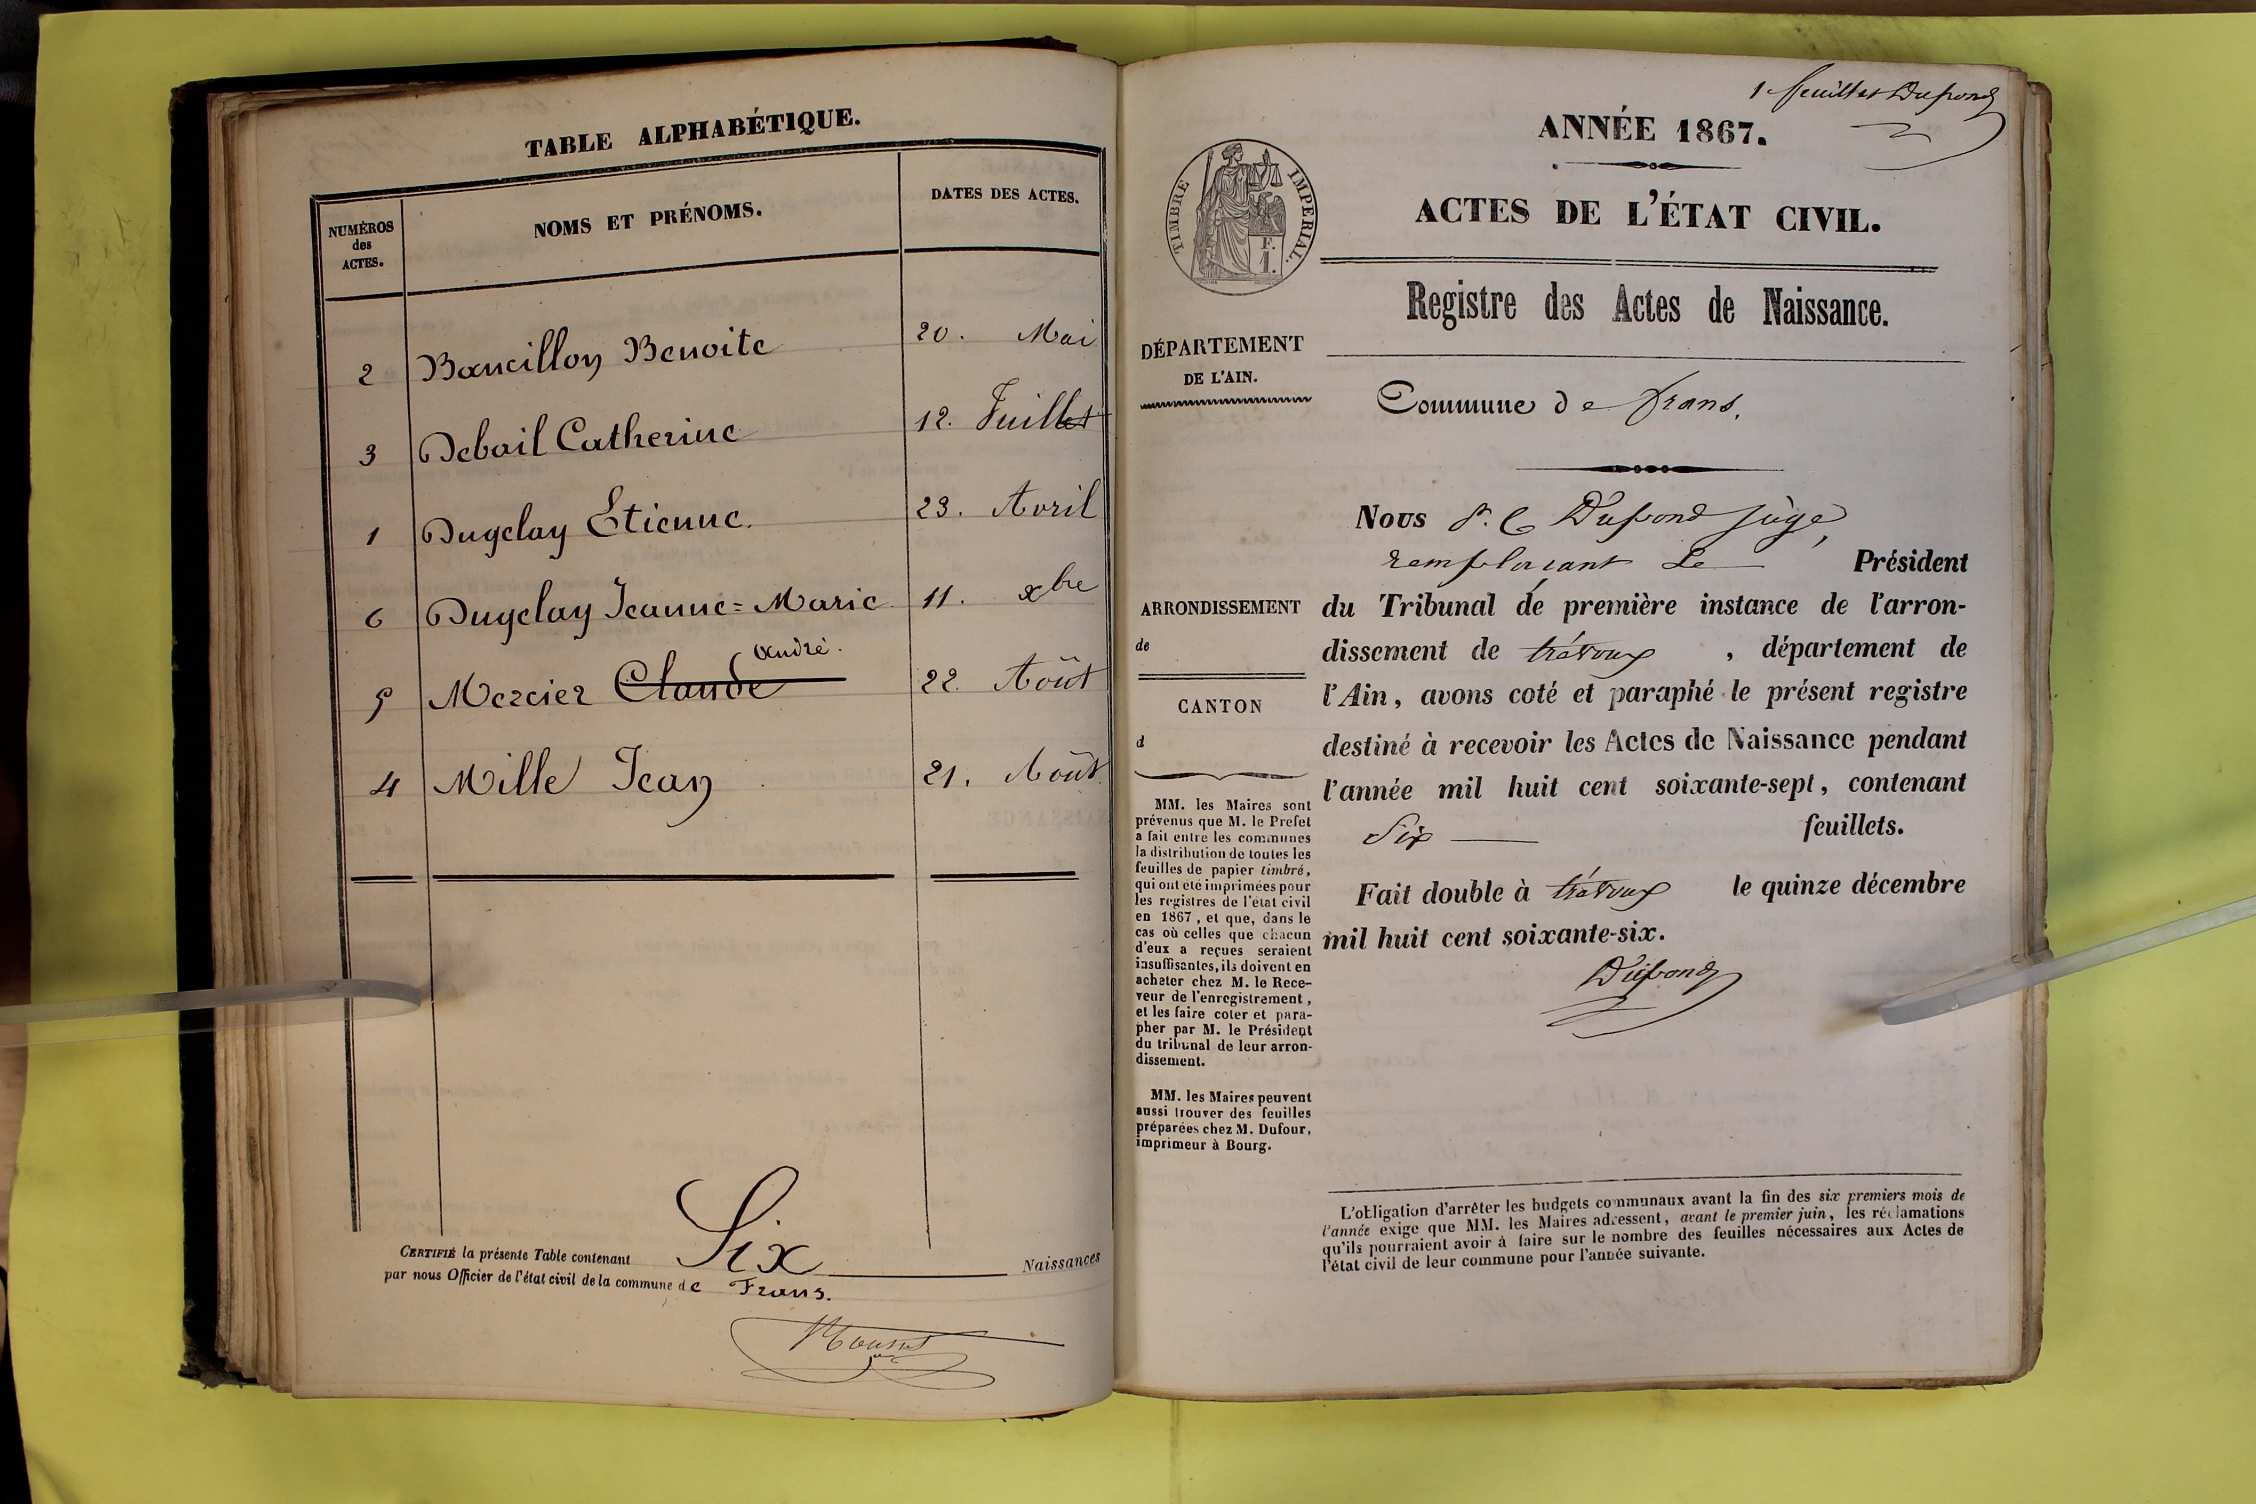 TABLE ALPHABÉTIQUE.
NUMÉROS des ACTES. NOMS ET PRÉNOMS. DATES DES ACTES.
2 Bancillon Benoite 20. Mai
3 Debail Catherine 12. Juillet
1 Dugelay Etienne. 23. Avril
6 Dugelay Jeanne=Marie 11. xbre
André.
5 Mercier Claude 22. Août
4 Mille Jean 21. Août
CERTIFIÉ la présente Table contenant Six Naissances
par nous Officier de l'état civil de la commune de Frans.
1er feuillet Dupond
ANNÉE 1867.
ACTES DE L'ÉTAT CIVIL.
TIMBRE IMPERIAL.
F.
1.
Registre des Actes de Naissance.
DÉPARTEMENT
DE L'AIN.
Commune de frans.
Nous Dupond juge,
remplacant Le Président
ARRONDISSEMENT
de
CANTON
d
du Tribunal de première instance de l'arron-
dissement de trévoux, département de
l'Ain, avons coté et paraphé le présent registre
destiné à recevoir les Actes de Naissance pendant
l'année mil huit cent soixante-sept, contenant
Six feuillets.
Fait double à trévoux le quinze décembre
mil huit cent soixante-six.
Dupond
MM. les Maires sont
prévenus que M. le Prefet
a fait entre les communes
la distribution de toutes les
feuilles de papier timbré,
qui ont été imprimées pour
les registres de l'état civil
en 1867, et que, dans le
cas où celles que chacun
d'eux a reçues seraient
insuffisantes, ils doivent en
acheter chez M. le Rece-
veur de l'enregistrement,
et les faire coter et para-
pher par M. le Président
du tribunal de leur arron-
dissement.
MM. les Maires peuvent
aussi trouver des feuilles
préparées chez M. Dufour,
imprimeur à Bourg.
L'obligation d'arrêter les budgets communaux avant la fin des six premiers mois de
l'année exige que MM. les Maires adressent, avant le premier juin, les réclamations
qu'ils pourraient avoir à faire sur le nombre des feuilles nécessaires aux Actes de
l'état civil de leur commune pour l'année suivante.